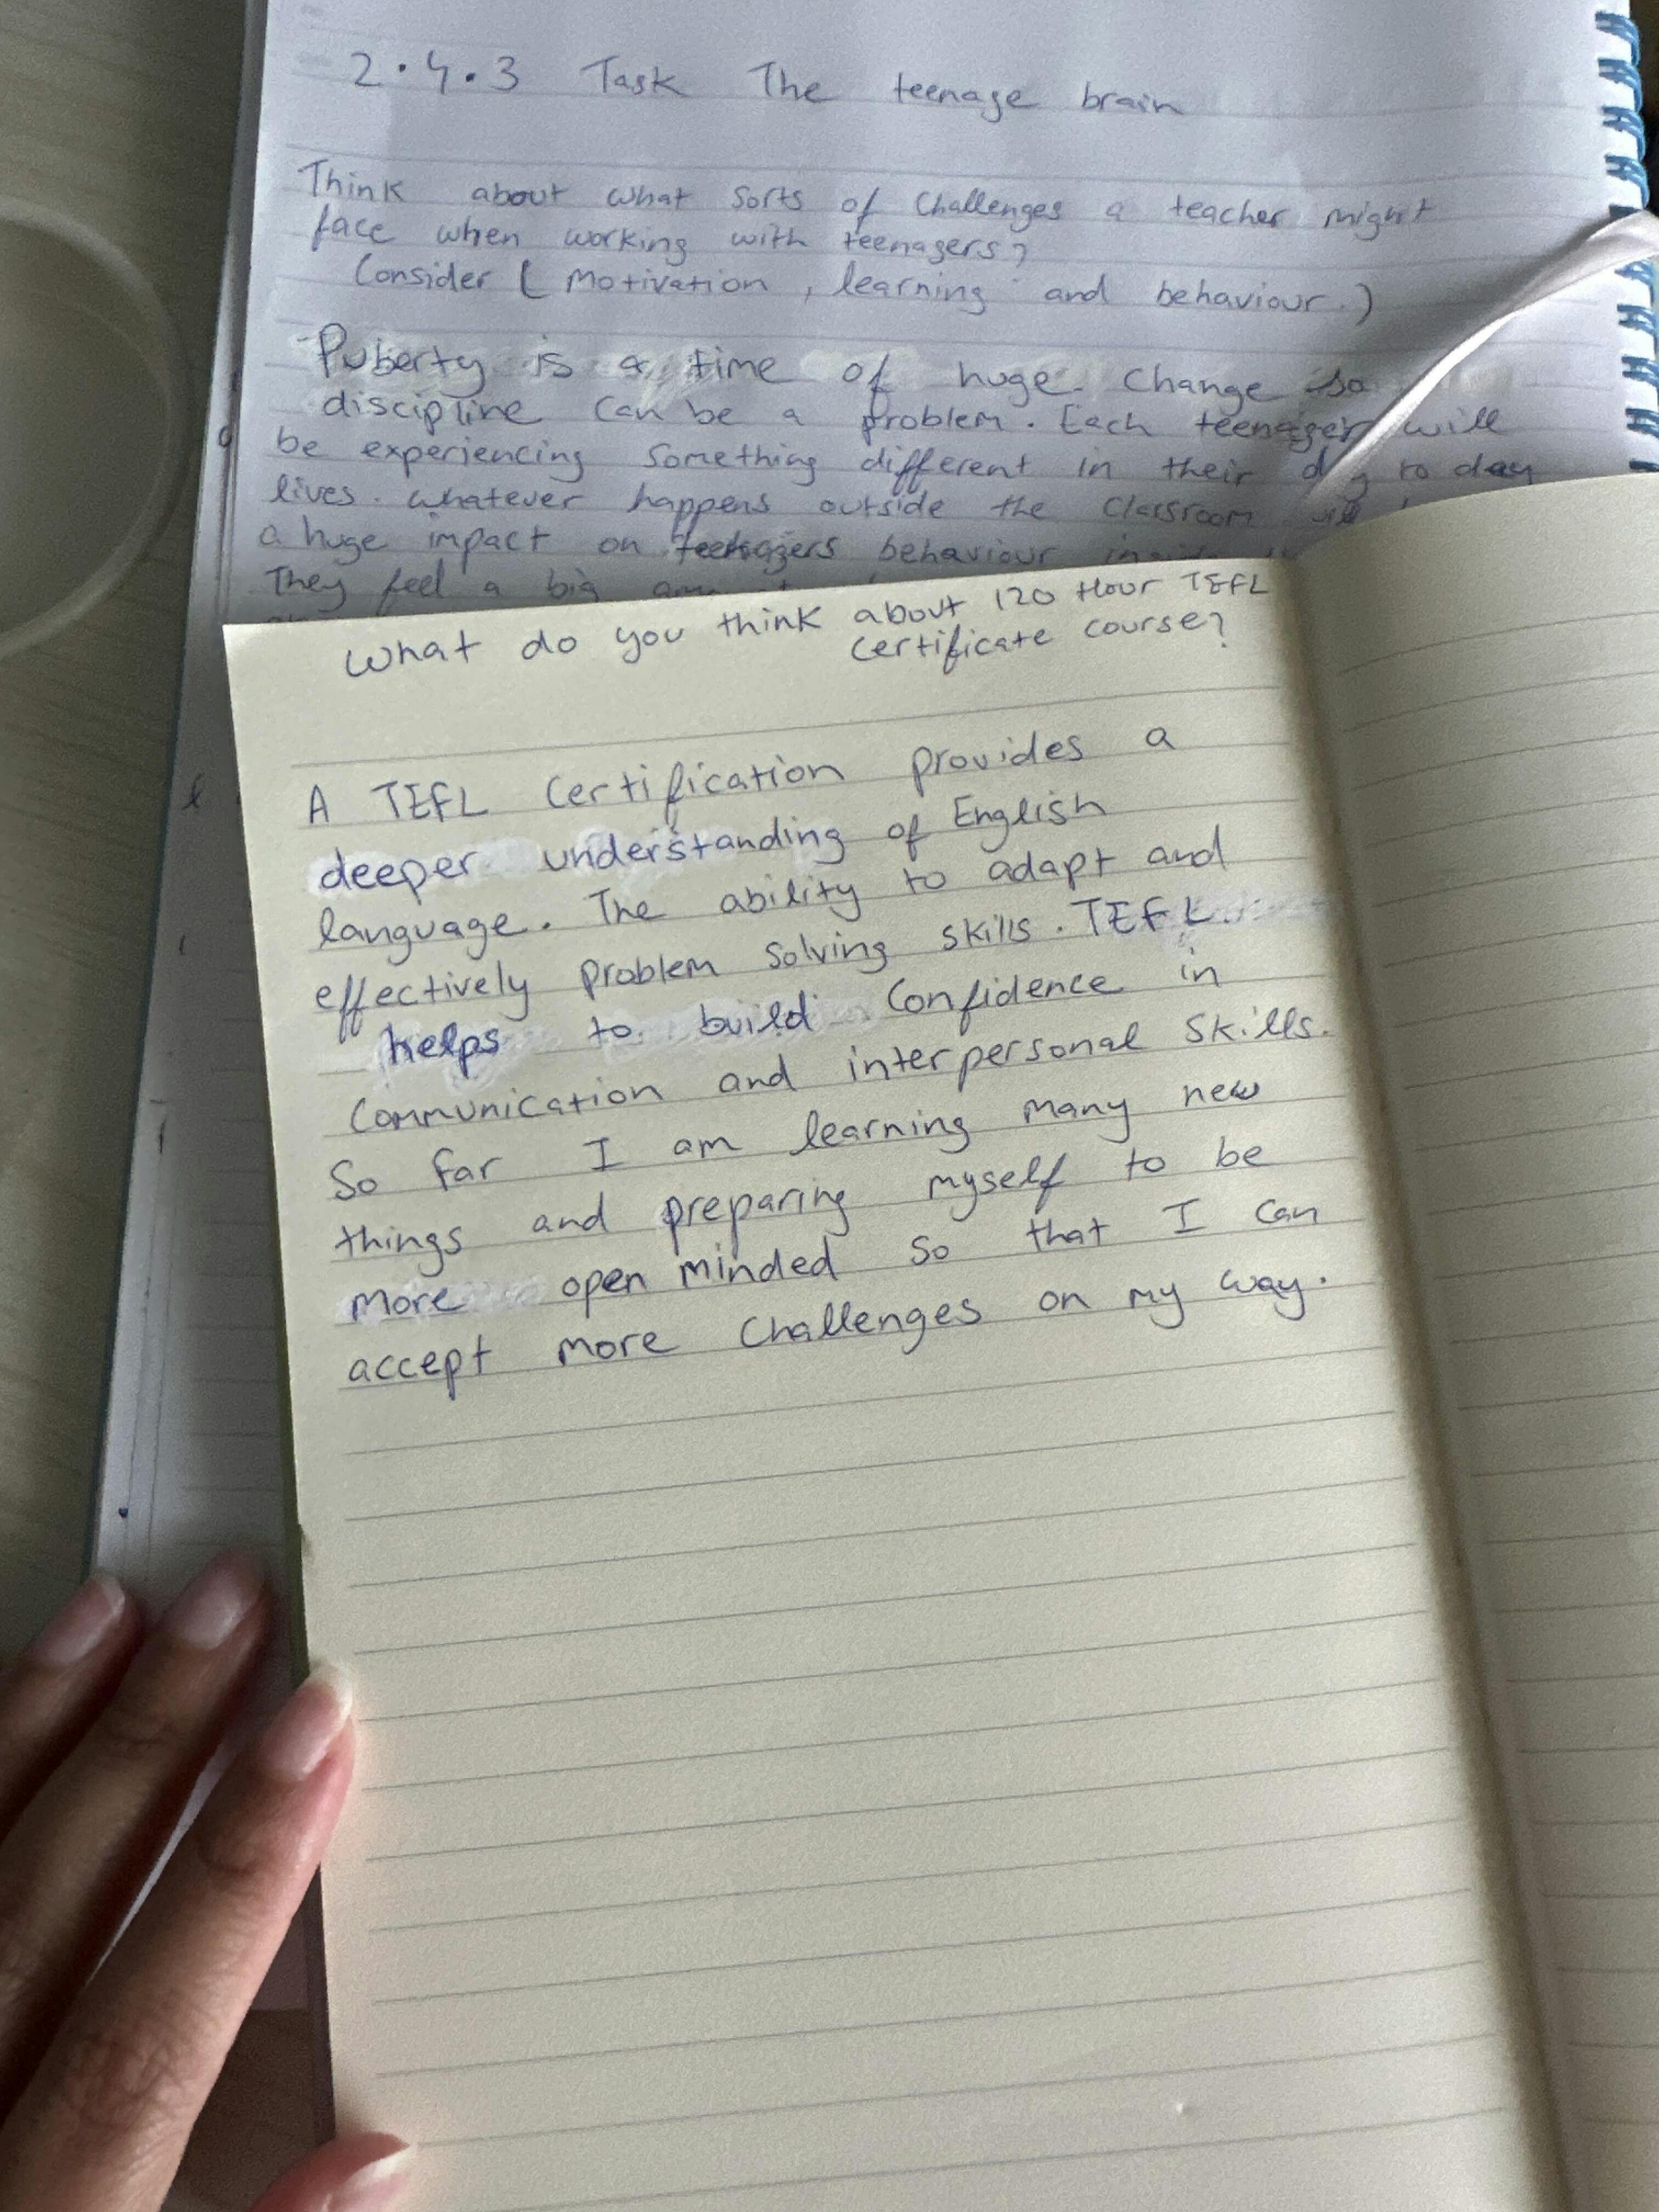 2.4.3 Task The teenage brain
Think about what sorts of challenges a teacher might
face when working with teenagers?
Consider ( Motivation, learning and behaviour.)
Puberty is a time of huge change so
discipline can be a problem. Each teenager will
be experiencing something different in their day to day
lives. whatever happens outside the classroom will
a huge impact on teenagers behaviour inside
They feel a big
What do you think about 120 Hour TEFL
certificate course?
A TEFL Certification provides a
deeper understanding of English
language. The ability to adapt and
effectively problem solving skills. TEFL
helps to build confidence in
communication and interpersonal skills.
So far I am learning many new
things and preparing myself to be
more open minded so that I can
accept more challenges on my way.